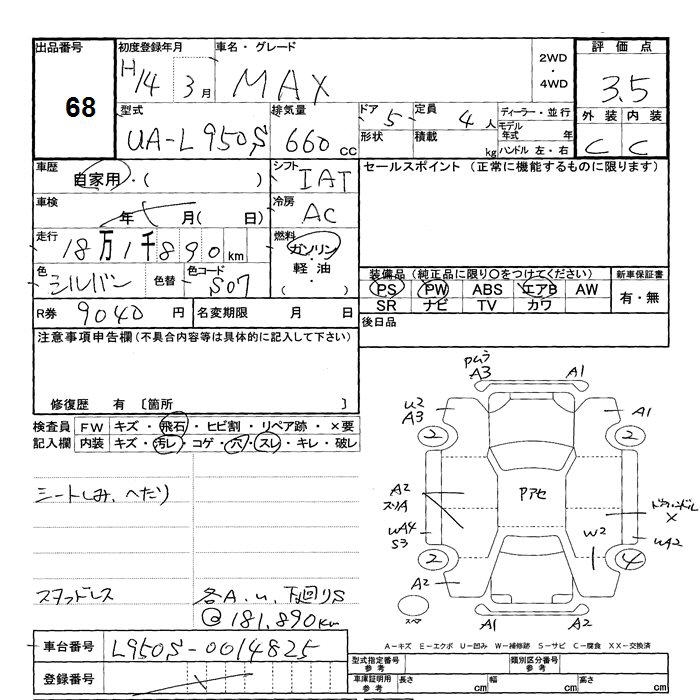 出品番号 初度登録年月 車名・グレード 2WD・4WD 評価点
68 H14 3月 MAX 3.5
型式 排気量 ドア 5 定員 4人 ディーラー・並行 外装 内装
UA-L950S 660cc 形状 積載 kg モデル年式 年 C C
ハンドル 左・右
車歴 自家用・( ) シフト IAT セールスポイント (正常に機能するものに限ります)
車検 年 月( 日) 冷房 AC
走行 18万1千890km 燃料 ガソリン・軽油・( )
色 シルバー 色替 色コード S07
装備品 (純正品に限り○をつけてください) 新車保証書
PS PW ABS エアB AW 有・無
SR ナビ TV カワ
R券 9040円 名変期限 月 日 後日品
注意事項申告欄 (不具合内容等は具体的に記入して下さい)
修復歴 有 [箇所 ]
検査員 FW キズ・飛石・ヒビ割・リペア跡・×要
記入欄 内装 キズ・汚レ・コゲ・穴・スレ・キレ・破レ
シートしみ、へたり
スタッドレス 各A.u.下回りS
@181,890km
車台番号 L950S-0014825
登録番号
A3 A1
U2
A3 A1
2 2
A2
スリA
Pアセ
ドアハンドル
×
WA4
S3
W2
WA2
2 4
A2
スペア
A1 A2
A-キズ E-エクボ U-凹み W-補修跡 S-サビ C-腐食 XX-交換済
型式指定番号 参考 類別区分番号 参考
車庫証明用 参考 長さ cm 幅 cm 高さ cm